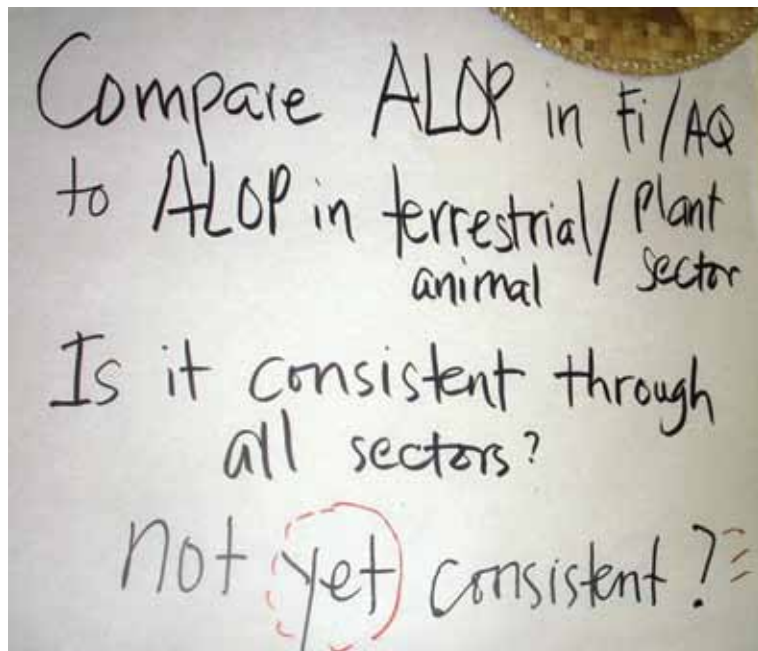 Compare ALOP in Fi/AQ
to ALOP in terrestrial/plant
animal sector
Is it consistent through
all sectors?
not yet consistent?